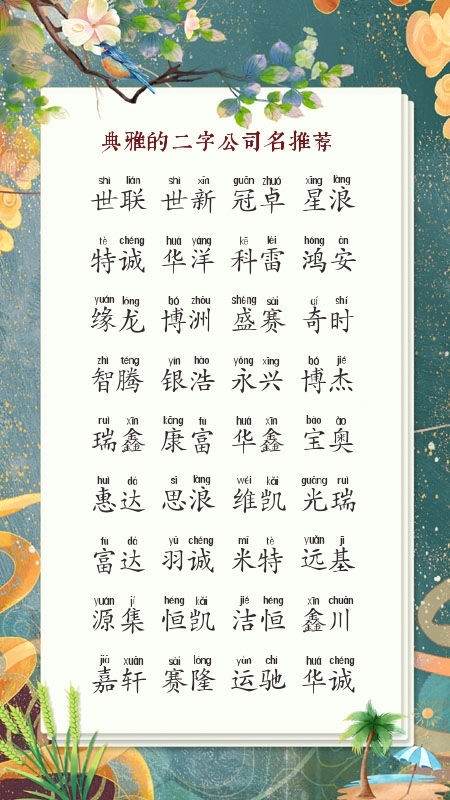 典雅的二字公司名推荐
shì lián shì xīn guān zhuó xīng làng
世联 世新 冠卓 星浪
tè chéng huá yáng kē léi hóng ān
特诚 华洋 科雷 鸿安
yuán lóng bó zhōu shèng sài qí shí
缘龙 博洲 盛赛 奇时
zhì téng yín hào yǒng xīng bó jié
智腾 银浩 永兴 博杰
ruì xīn kāng fù huá xīn bǎo ào
瑞鑫 康富 华鑫 宝奥
huì dá sī làng wéi kǎi guāng ruì
惠达 思浪 维凯 光瑞
fù dá yǔ chéng mǐ tè yuǎn jī
富达 羽诚 米特 远基
yuán jí héng kǎi jié héng xīn chuān
源集 恒凯 洁恒 鑫川
jiā xuān sài lóng yùn chí huá chéng
嘉轩 赛隆 运驰 华诚